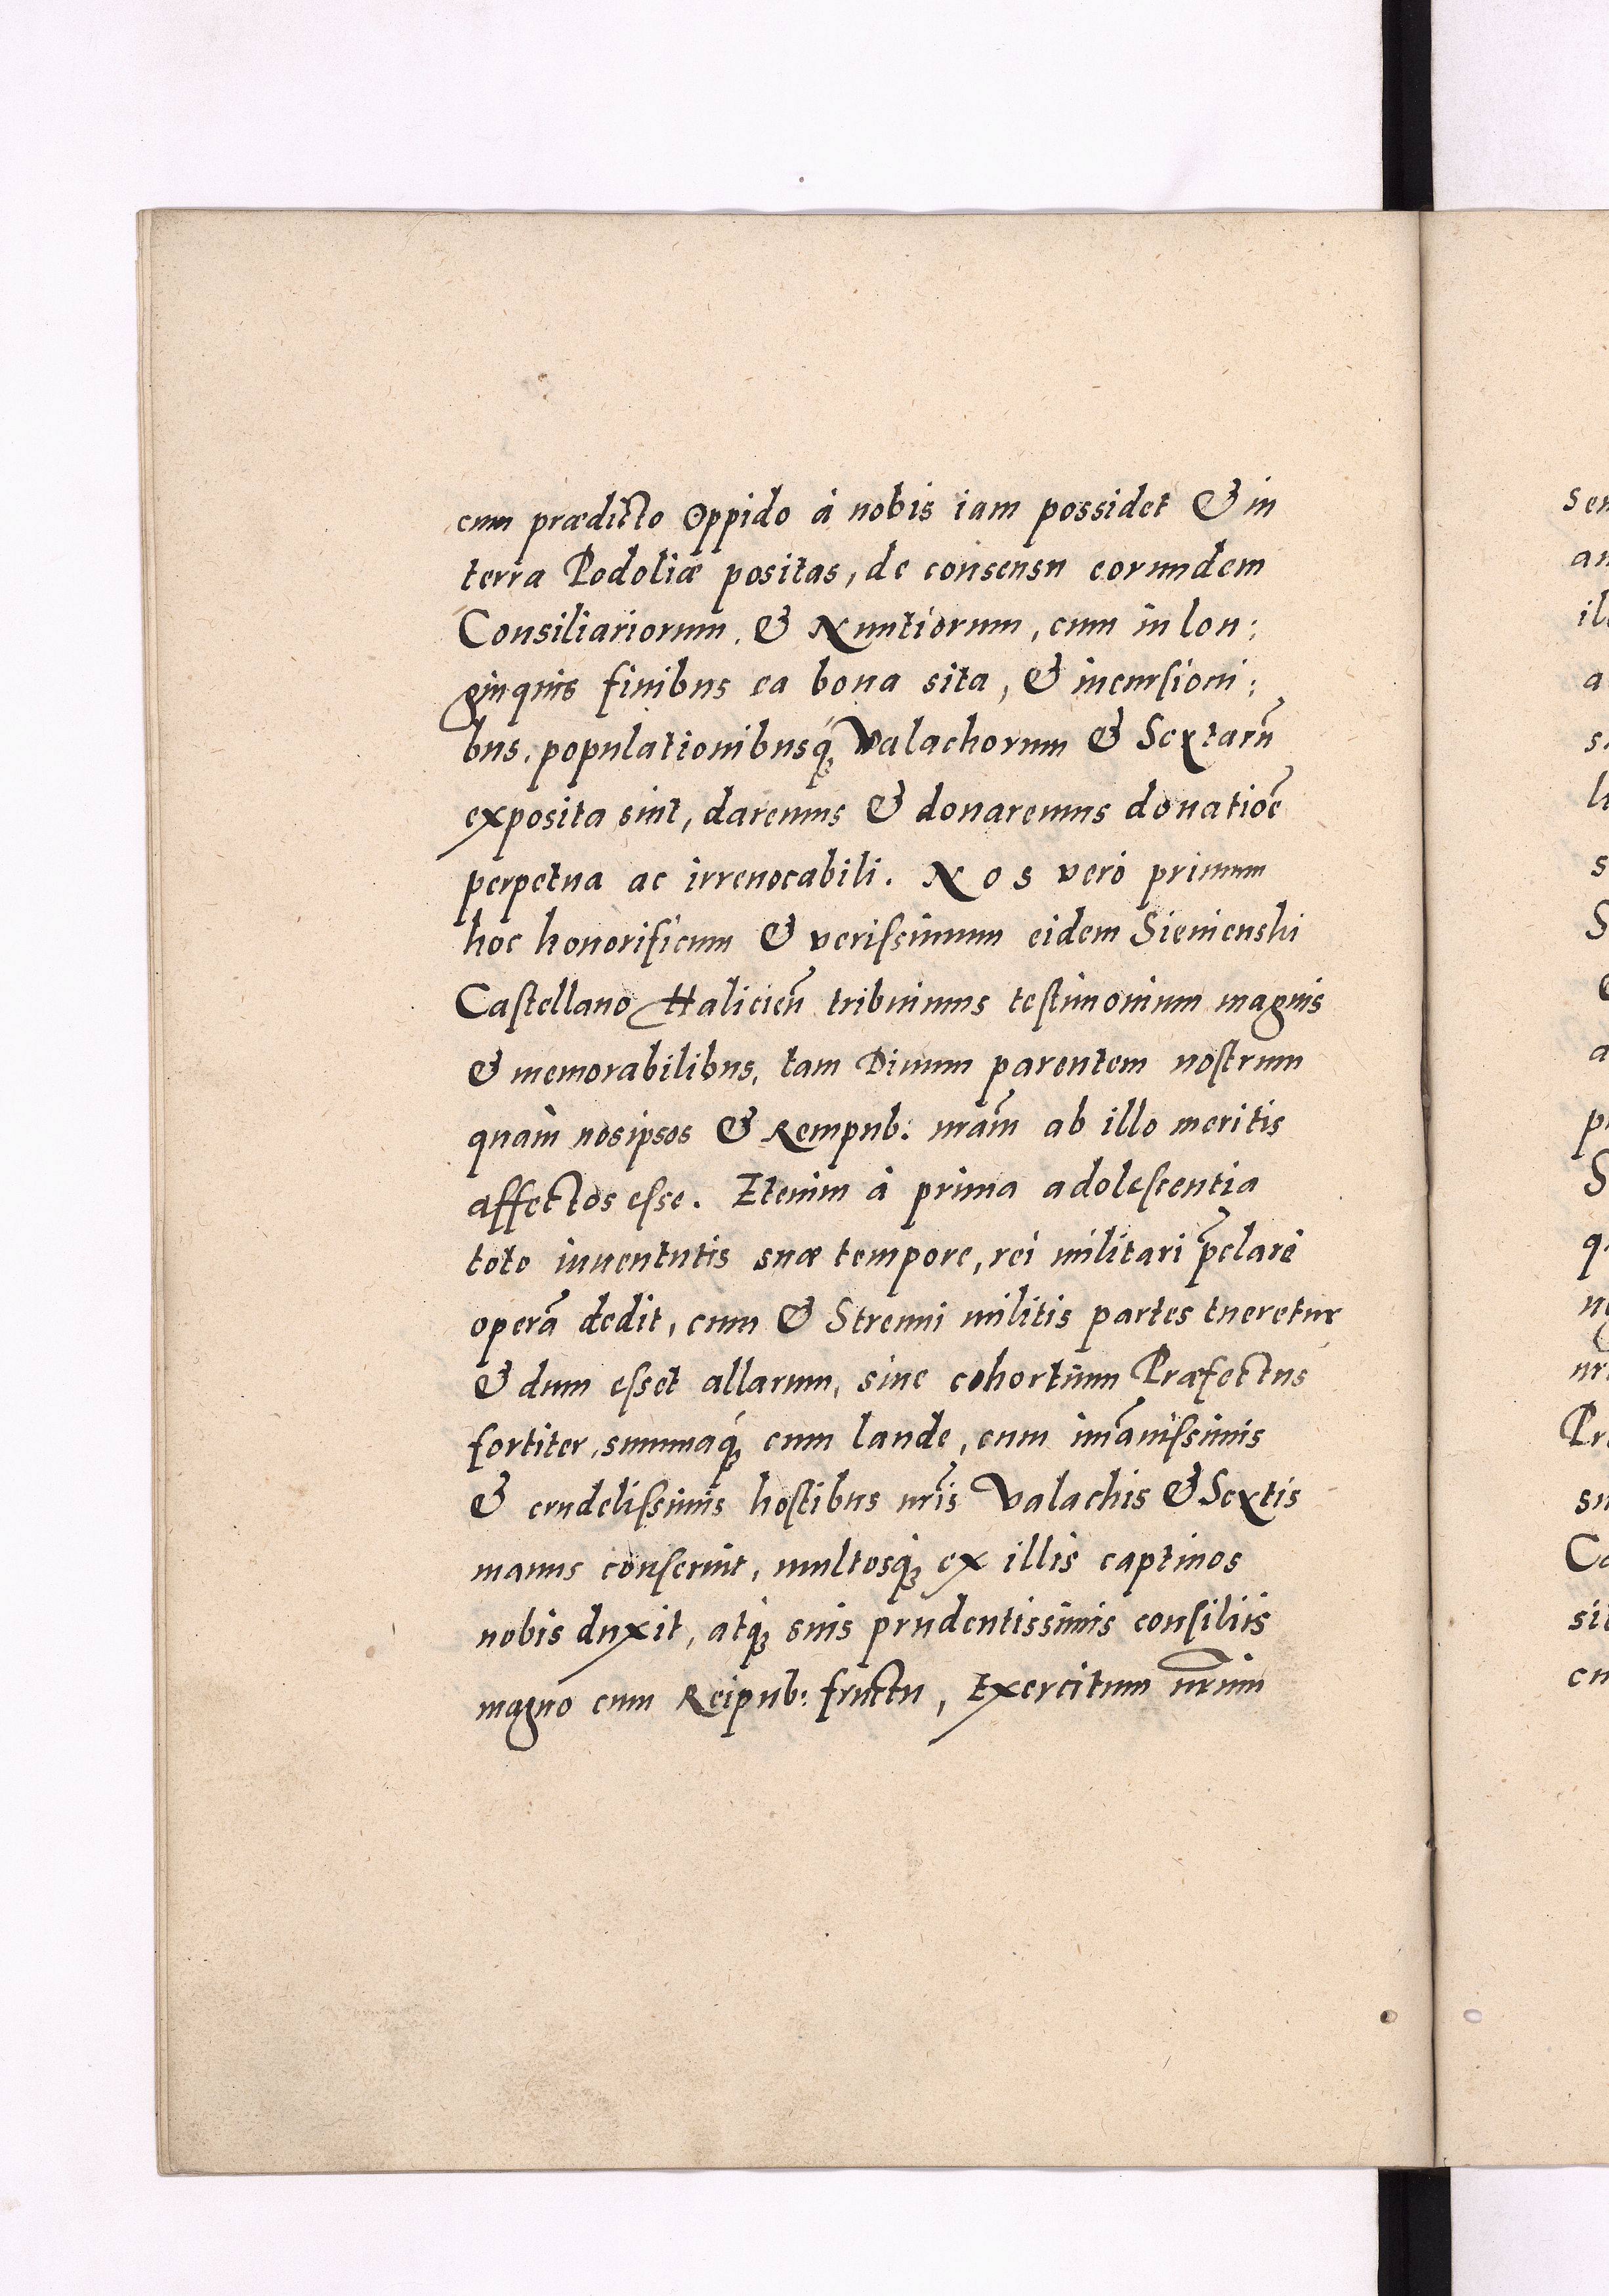 cum prædicto Oppido à nobis iam possidet & in
terra Podoliæ positas, de consensu eorundem
Consiliariorum, & Nuntiorum, cum in lon:
ginquis finibus ea bona sita, & incursioni:
bus, populationibusq́; Valachorum & Scytarū
exposita sint, daremus & donaremus donatiōe
perpetua ac irreuocabili. Nos vero primum
hoc honorificum & verissimum eidem Sienienski
Castellano Halicień tribuimus testimonium magnis
& memorabilibus, tam Diuum parentem nostrum
quàm nosipsos & Rempub: nr̄am ab illo meritis
affectos esse. Etenim à prima adolescentia
toto iuuentutis suæ tempore, rei militari p̄clarè
operā dedit, cum & Strenui militis partes tueretur
& dum esset allarum, siue cohortium Præfectus
fortiter, summaq́; cum laude, cum im̄anissimis
& crudelissimis hostibus nr̄is Valachis & Scytis
manus conseruit, multosq́; ex illis captiuos
nobis duxit, atq́; suis prudentissimis consiliis
magno cum Reipub: fructu, Exercitum nr̄um